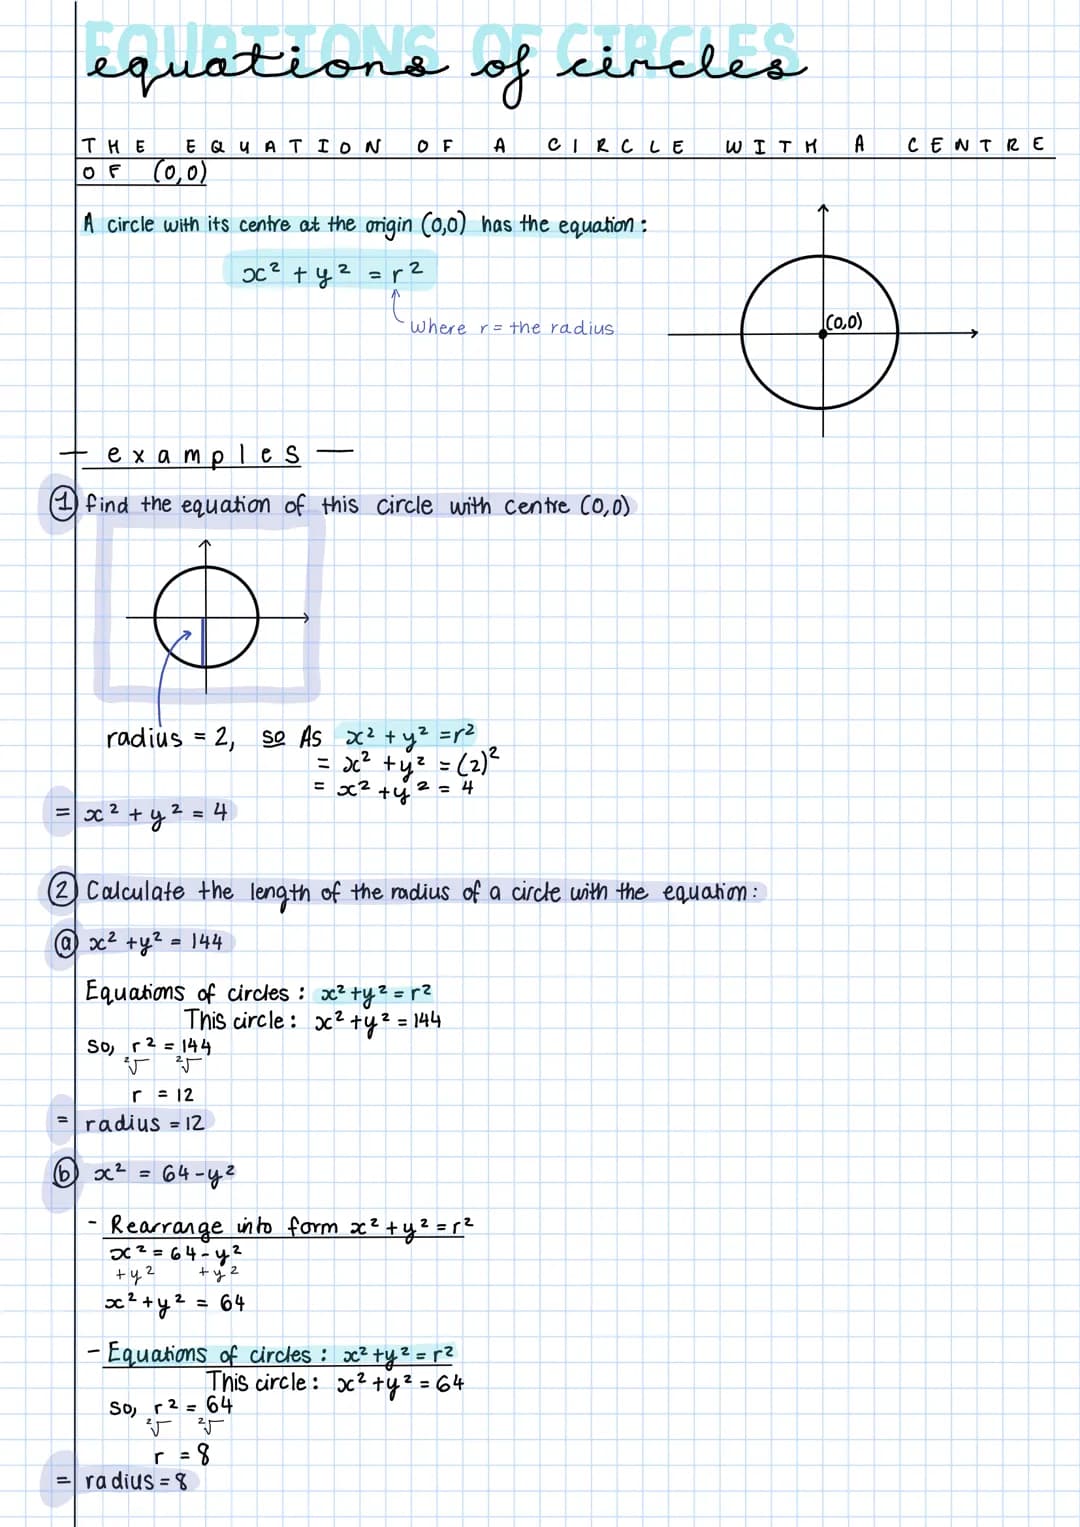 EQUATIONS OF CIRCLES
equations of circles
THE EQUATION OF A CIRCLE WITH A CENTRE
OF (0,0)
A circle with its centre at the origin (0,0) has the equation:
x² + y² = r²
where r = the radius
(0,0)
— examples —
① find the equation of this circle with centre (0,0)
radius = 2, so As x² + y² = r²
= x² + y² = (2)²
= x² + y² = 4
= x² + y² = 4
② Calculate the length of the radius of a circle with the equation:
ⓐ x² + y² = 144
Equations of circles: x² + y² = r²
This circle: x² + y² = 144
So, r² = 144
²√ ²√
r = 12
= radius = 12
ⓑ x² = 64 - y²
- Rearrange into form x² + y² = r²
x² = 64 - y²
+y² +y²
x² + y² = 64
- Equations of circles: x² + y² = r²
This circle: x² + y² = 64
So, r² = 64
²√ ²√
r = 8
= radius = 8